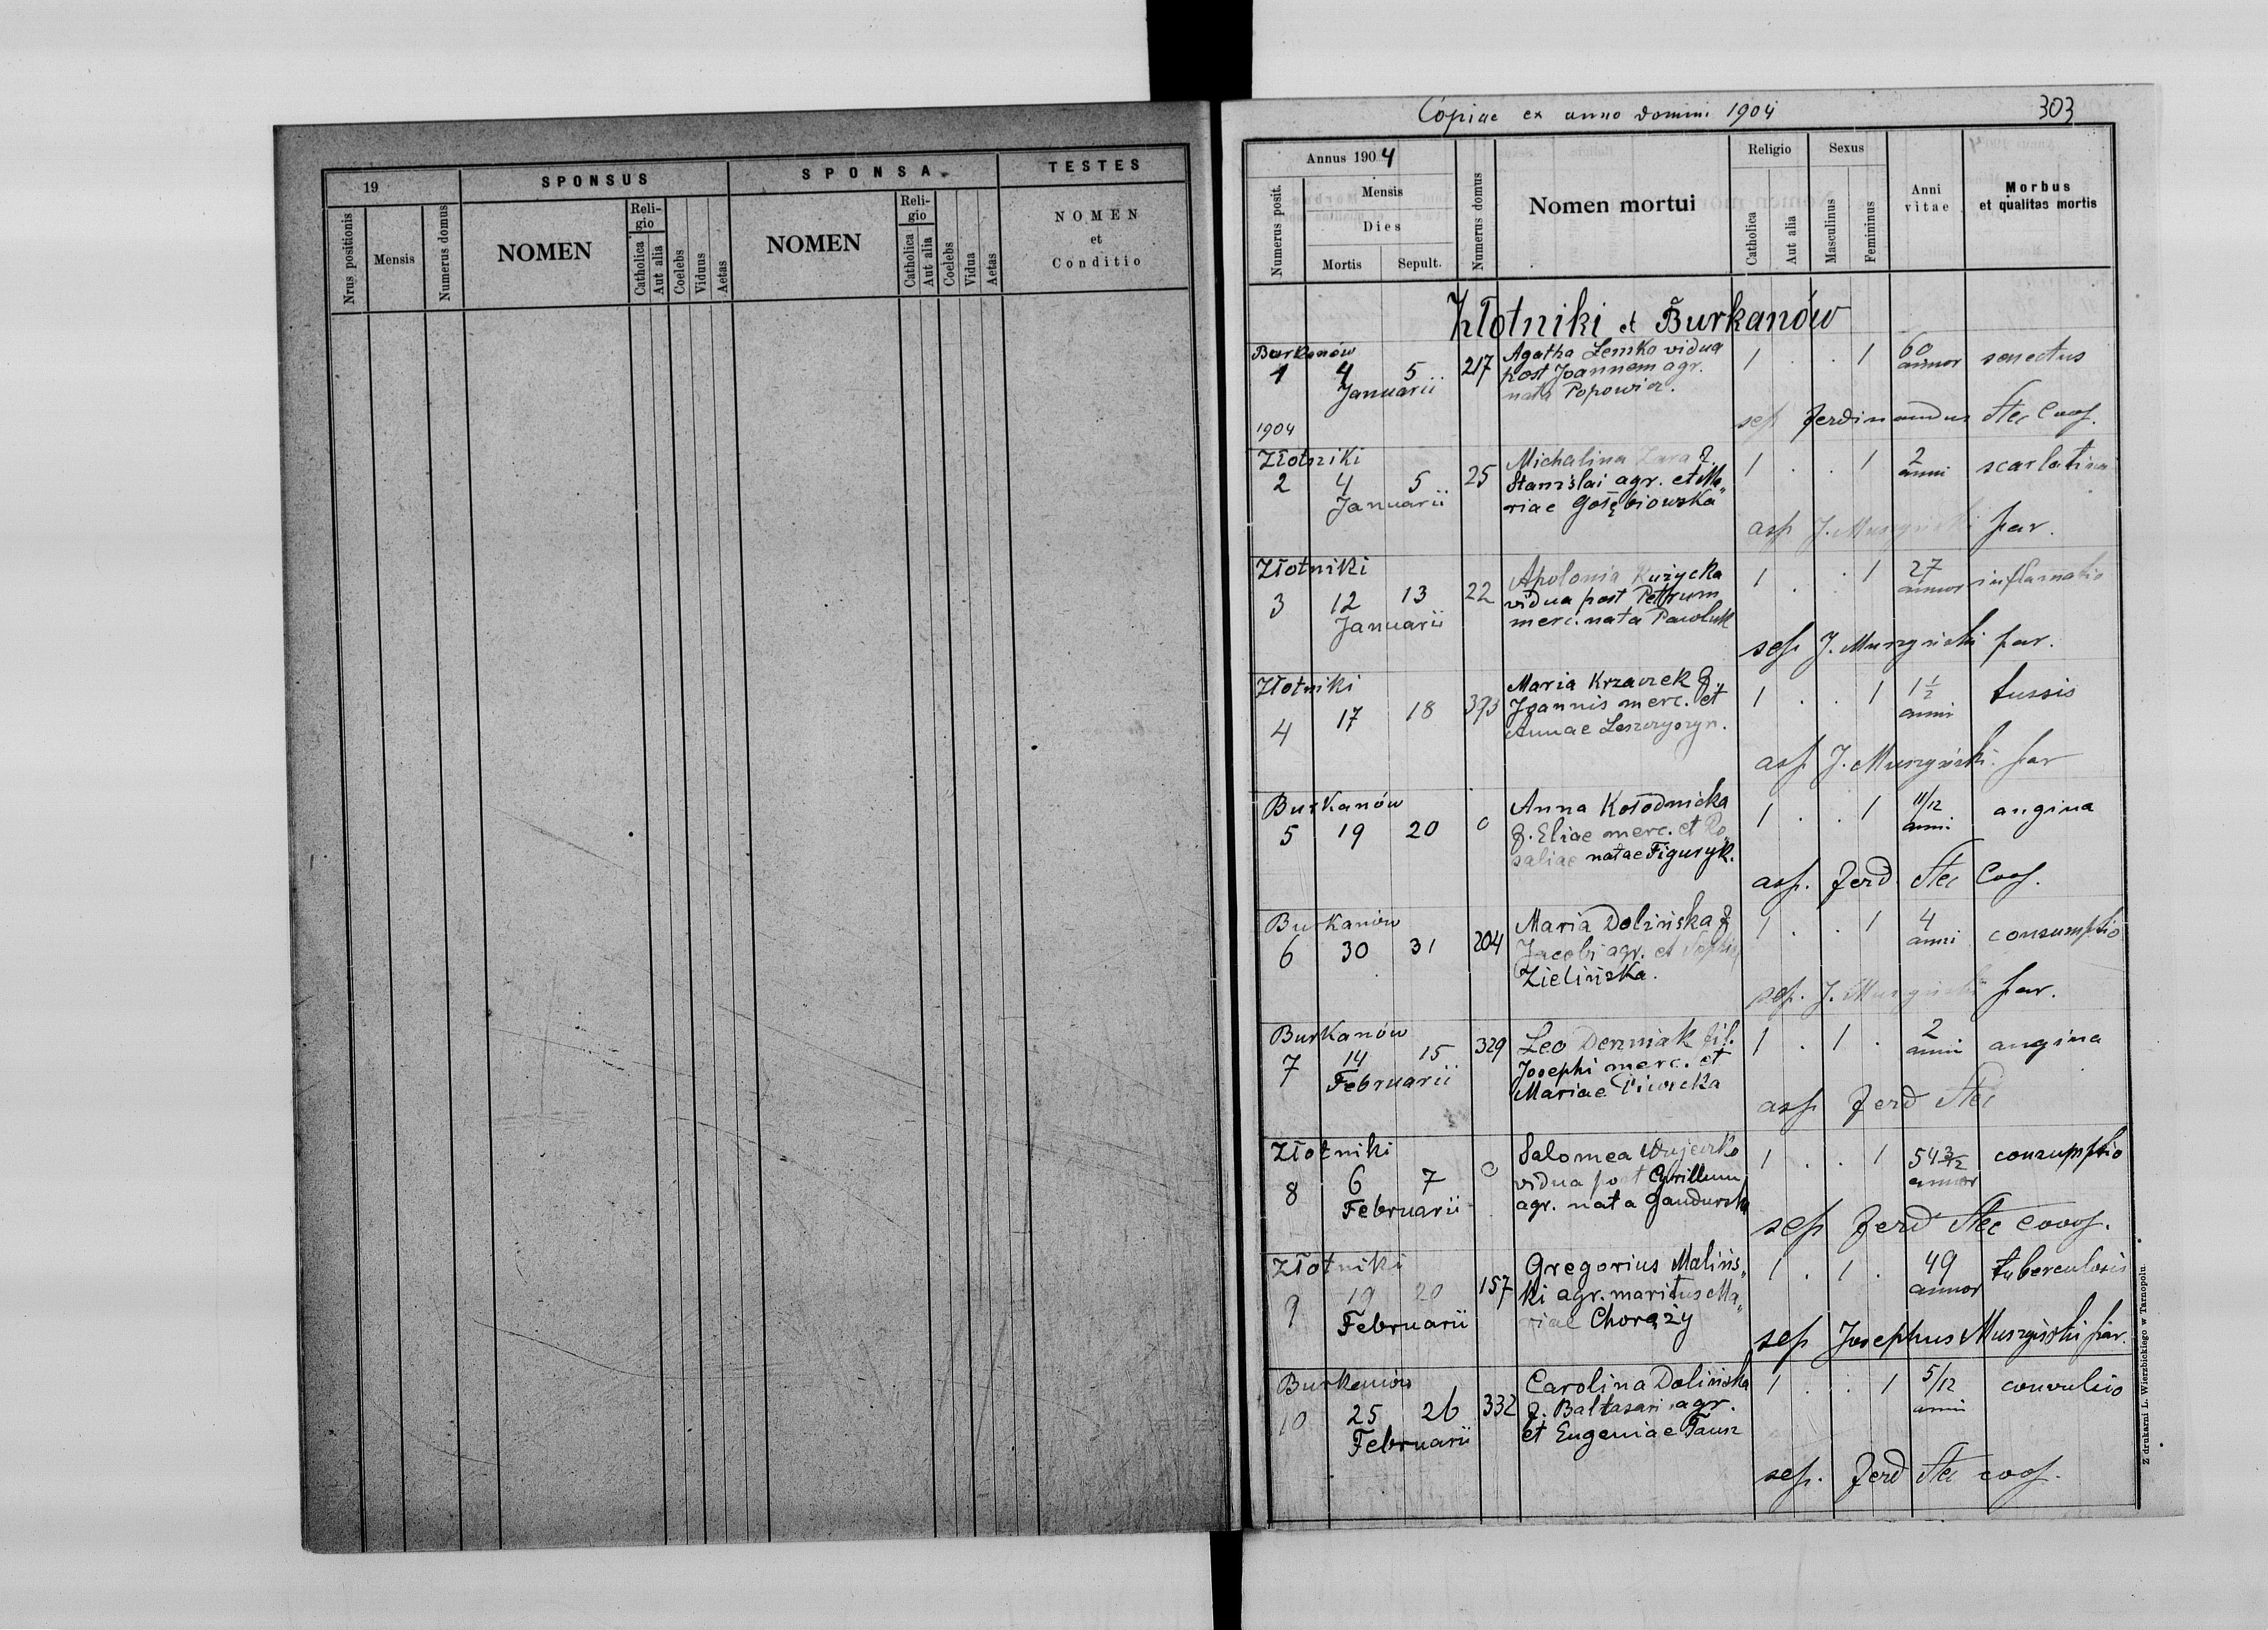 19
SPONSUS
SPONSA
TESTES
Nrus positionis
Mensis
Numerus domus
NOMEN
Reli-
gio
Catholica
Aut alia
Coelebs
Viduus
Aetas
NOMEN
Reli-
gio
Catholica
Aut alia
Coelebs
Vidua
Aetas
NOMEN
et
Conditio
Copiae ex anno domini 1904
303
Annus 1904
Numerus posit.
Mensis
Dies
Mortis Sepult.
Numerus domus
Nomen mortui
Religio
Catholica
Aut alia
Sexus
Masculinus
Femininus
Anni
vitae
Morbus
et qualitas mortis
Złotniki et Burkanów
Burkanów
1 4 5 217 Agatha Lenko vidua 1 . . 1 60 senectus
Januarii post Joannem agr. annor
nata Popowicz.
1904 sep Ferdinandus Stec Coop.
Złotniki
2 4 5 25 Michalina f. 1 . . 1 2 scarlatina
Januarii Stanislai agr. et Ma„ anni
riae Gołębiowska
asp J. Muszyński par.
Złotniki
3 12 13 22 Apolonia Kużycka 1 . . 1 27 inflamatio
Januarii vidua post Petrum annor
merc. nata Pawluk
sep J. Muszyński par.
Złotniki
4 17 18 393 Maria Krzaczek f. 1 . . 1 1 1/2 tussis
Joannis merc. et anni
Annae
asp J. Muszyński par
Burkanów
5 19 20 0 Anna Kołodnicka 1 . . 1 11/12 angina
f. Eliae merc. et Ro„ anni
saliae natae Figuryk.
asp. Ferd. Stec Coop.
Burkanów
6 30 31 204 Maria Dolińska f. 1 . . 1 4 consumptio
Jacobi agr. et Sophiae anni
Zielińska.
sep. J. Muszyński par.
Burkanów
7 14 15 329 Leo Derzniak fil. 1 . 1 . 2 angina
Februarii Josephi merc. et anni
Mariae
asp Ferd Stec
Złotniki
8 6 7 0 Salomea 1 . . 1 54 3/12 consumptio
Februarii vidua post Cyrillum annor
agr. nata Gandurska
sep Ferd Stec coop.
Złotniki
9 19 20 157 Gregorius Malińs„ 1 . 1 . 49 tuberculosis
Februarii ki agr. maritus Ma„ annor
riae Chorąży
sep Josephus Muszyński par.
Burkanów
10 25 26 332 Carolina Dolińska 1 . . 1 5/12 convulsio
Februarii f. Baltasari agr. anni
et Eugeniae
sep. Ferd Stec coop.
Z drukarni L. Wierzbickiego w Tarnopolu.